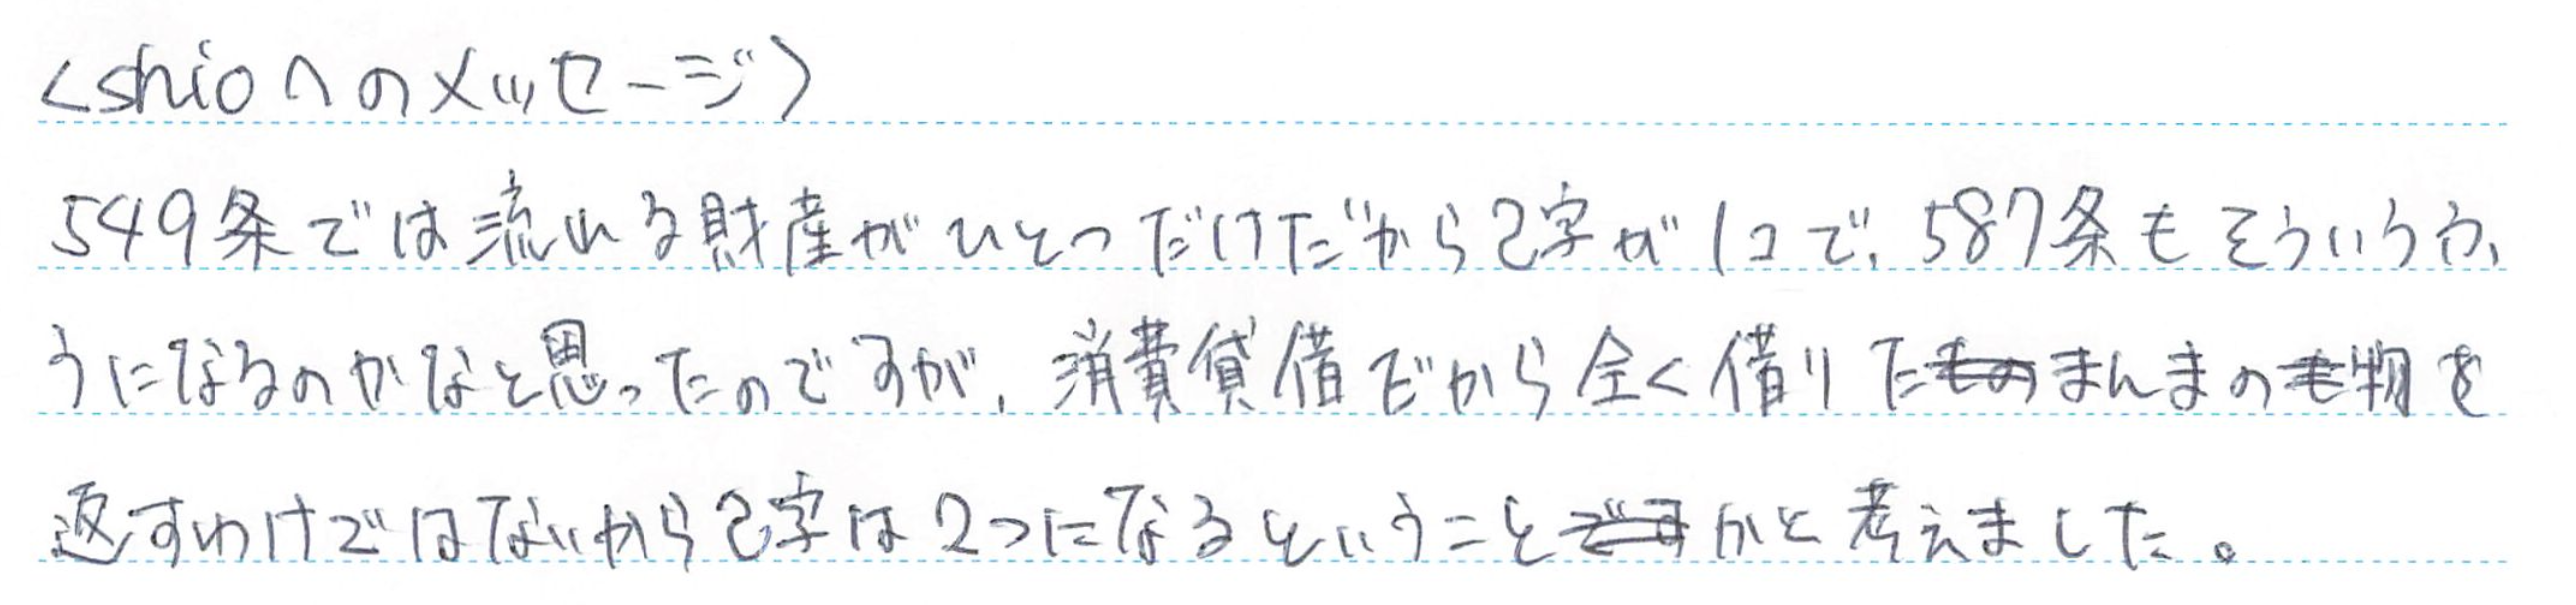 <shioへのメッセージ>
549条では流れる財産がひとつだけだから己字が1コで、587条もそういうふ
うになるのかなと思ったのですが、消費貸借だから全く借りたまんまの物を
返すわけではないから己字は2つになるということかと考えました。